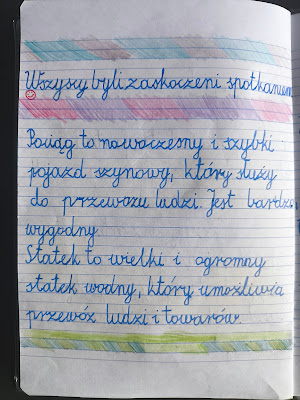 Wszyscy byli zaskoczeni spotkaniem
Pociąg to nowoczesny i szybki
pojazd szynowy, który służy
do przewozu ludzi. Jest bardzo
wygodny.
Statek to wielki i ogromny
statek wodny, który umożliwia
przewóz ludzi i towarów.